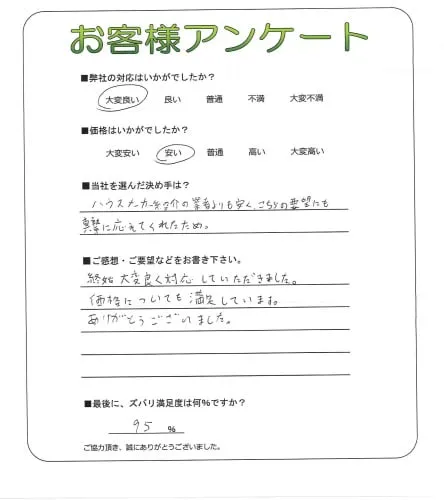 お客様アンケート
■弊社の対応はいかがでしたか？
大変良い 良い 普通 不満 大変不満
■価格はいかがでしたか？
大変安い 安い 普通 高い 大変高い
■当社を選んだ決め手は？
ハウスメーカー紹介の業者よりも安く、こちらの要望にも
真摯に応えてくれたため。
■ご感想・ご要望などをお書き下さい。
終始大変良く対応していただきました。
価格についても満足しています。
ありがとうございました。
■最後に、ズバリ満足度は何%ですか？
95 %
ご協力頂き、誠にありがとうございました。